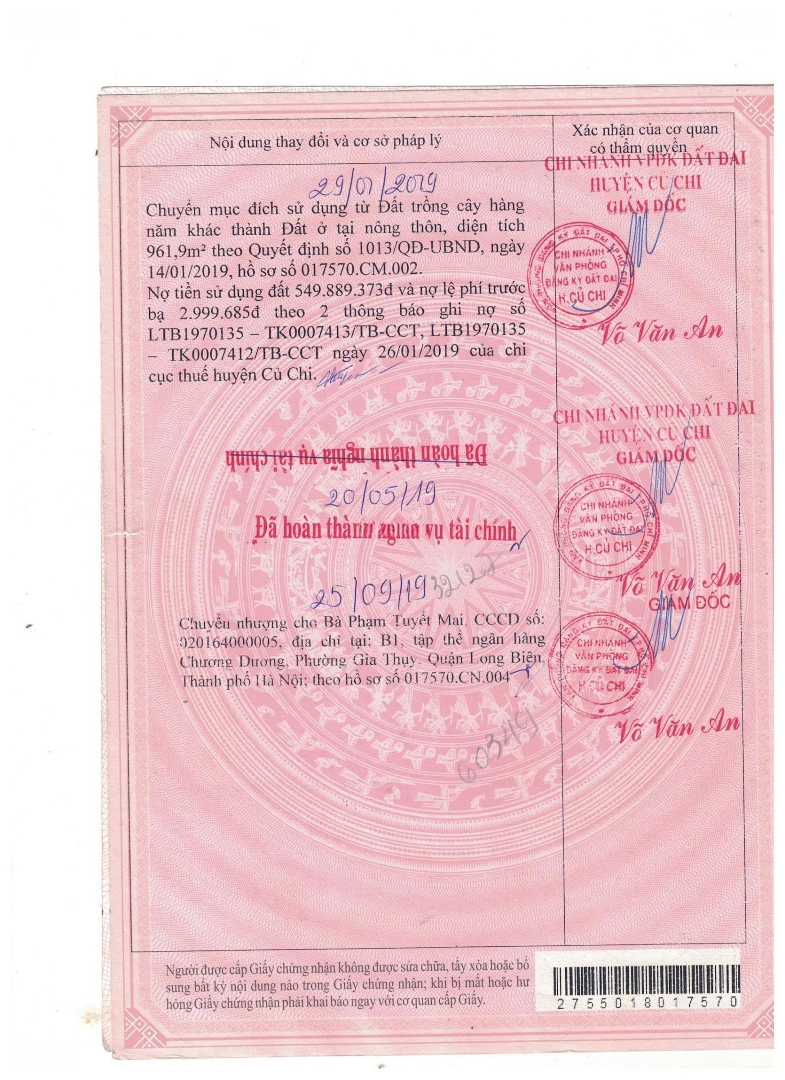 Nội dung thay đổi và cơ sở pháp lý
Xác nhận của cơ quan
có thẩm quyền
29/01/2019
Chuyển mục đích sử dụng từ Đất trồng cây hàng
năm khác thành Đất ở tại nông thôn, diện tích
961,9m² theo Quyết định số 1013/QĐ-UBND, ngày
14/01/2019, hồ sơ số 017570.CM.002.
Nợ tiền sử dụng đất 549.889.373đ và nợ lệ phí trước
bạ 2.999.685đ theo 2 thông báo ghi nợ số
LTB1970135 – TK0007413/TB-CCT, LTB1970135
– TK0007412/TB-CCT ngày 26/01/2019 của chi
cục thuế huyện Củ Chi.
CHI NHÁNH VPĐK ĐẤT ĐAI
HUYỆN CỦ CHI
GIÁM ĐỐC
VĂN PHÒNG ĐĂNG KÝ ĐẤT ĐAI T.P HỒ CHÍ MINH
CHI NHÁNH
VĂN PHÒNG
ĐĂNG KÝ ĐẤT ĐAI
H.CỦ CHI
Võ Văn An
Đã hoàn thành nghĩa vụ tài chính
20/05/19
Đã hoàn thành nghĩa vụ tài chính
CHI NHÁNH VPĐK ĐẤT ĐAI
HUYỆN CỦ CHI
GIÁM ĐỐC
VĂN PHÒNG ĐĂNG KÝ ĐẤT ĐAI T.P HỒ CHÍ MINH
CHI NHÁNH
VĂN PHÒNG
ĐĂNG KÝ ĐẤT ĐAI
H.CỦ CHI
Võ Văn An
25/09/19
Chuyển nhượng cho Bà Phạm Tuyết Mai, CCCD số:
020164000005, địa chỉ tại: B1, tập thể ngân hàng
Chương Dương, Phường Gia Thụy, Quận Long Biên,
Thành phố Hà Nội; theo hồ sơ số 017570.CN.004
GIÁM ĐỐC
VĂN PHÒNG ĐĂNG KÝ ĐẤT ĐAI T.P HỒ CHÍ MINH
CHI NHÁNH
VĂN PHÒNG
ĐĂNG KÝ ĐẤT ĐAI
H.CỦ CHI
Võ Văn An
60349
Người được cấp Giấy chứng nhận không được sửa chữa, tẩy xóa hoặc bổ
sung bất kỳ nội dung nào trong Giấy chứng nhận; khi bị mất hoặc hư
hỏng Giấy chứng nhận phải khai báo ngay với cơ quan cấp Giấy.
2755018017570